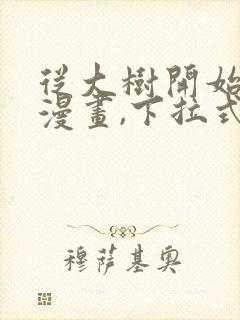 從大樹開始
漫畫,下拉式
穆薩基奧